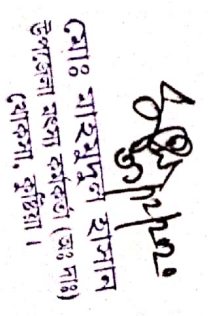 মোঃ মাহমুদুল হাসান
উপজেলা মৎস্য কর্মকর্তা (অঃ দাঃ)
খোকসা, কুষ্টিয়া।